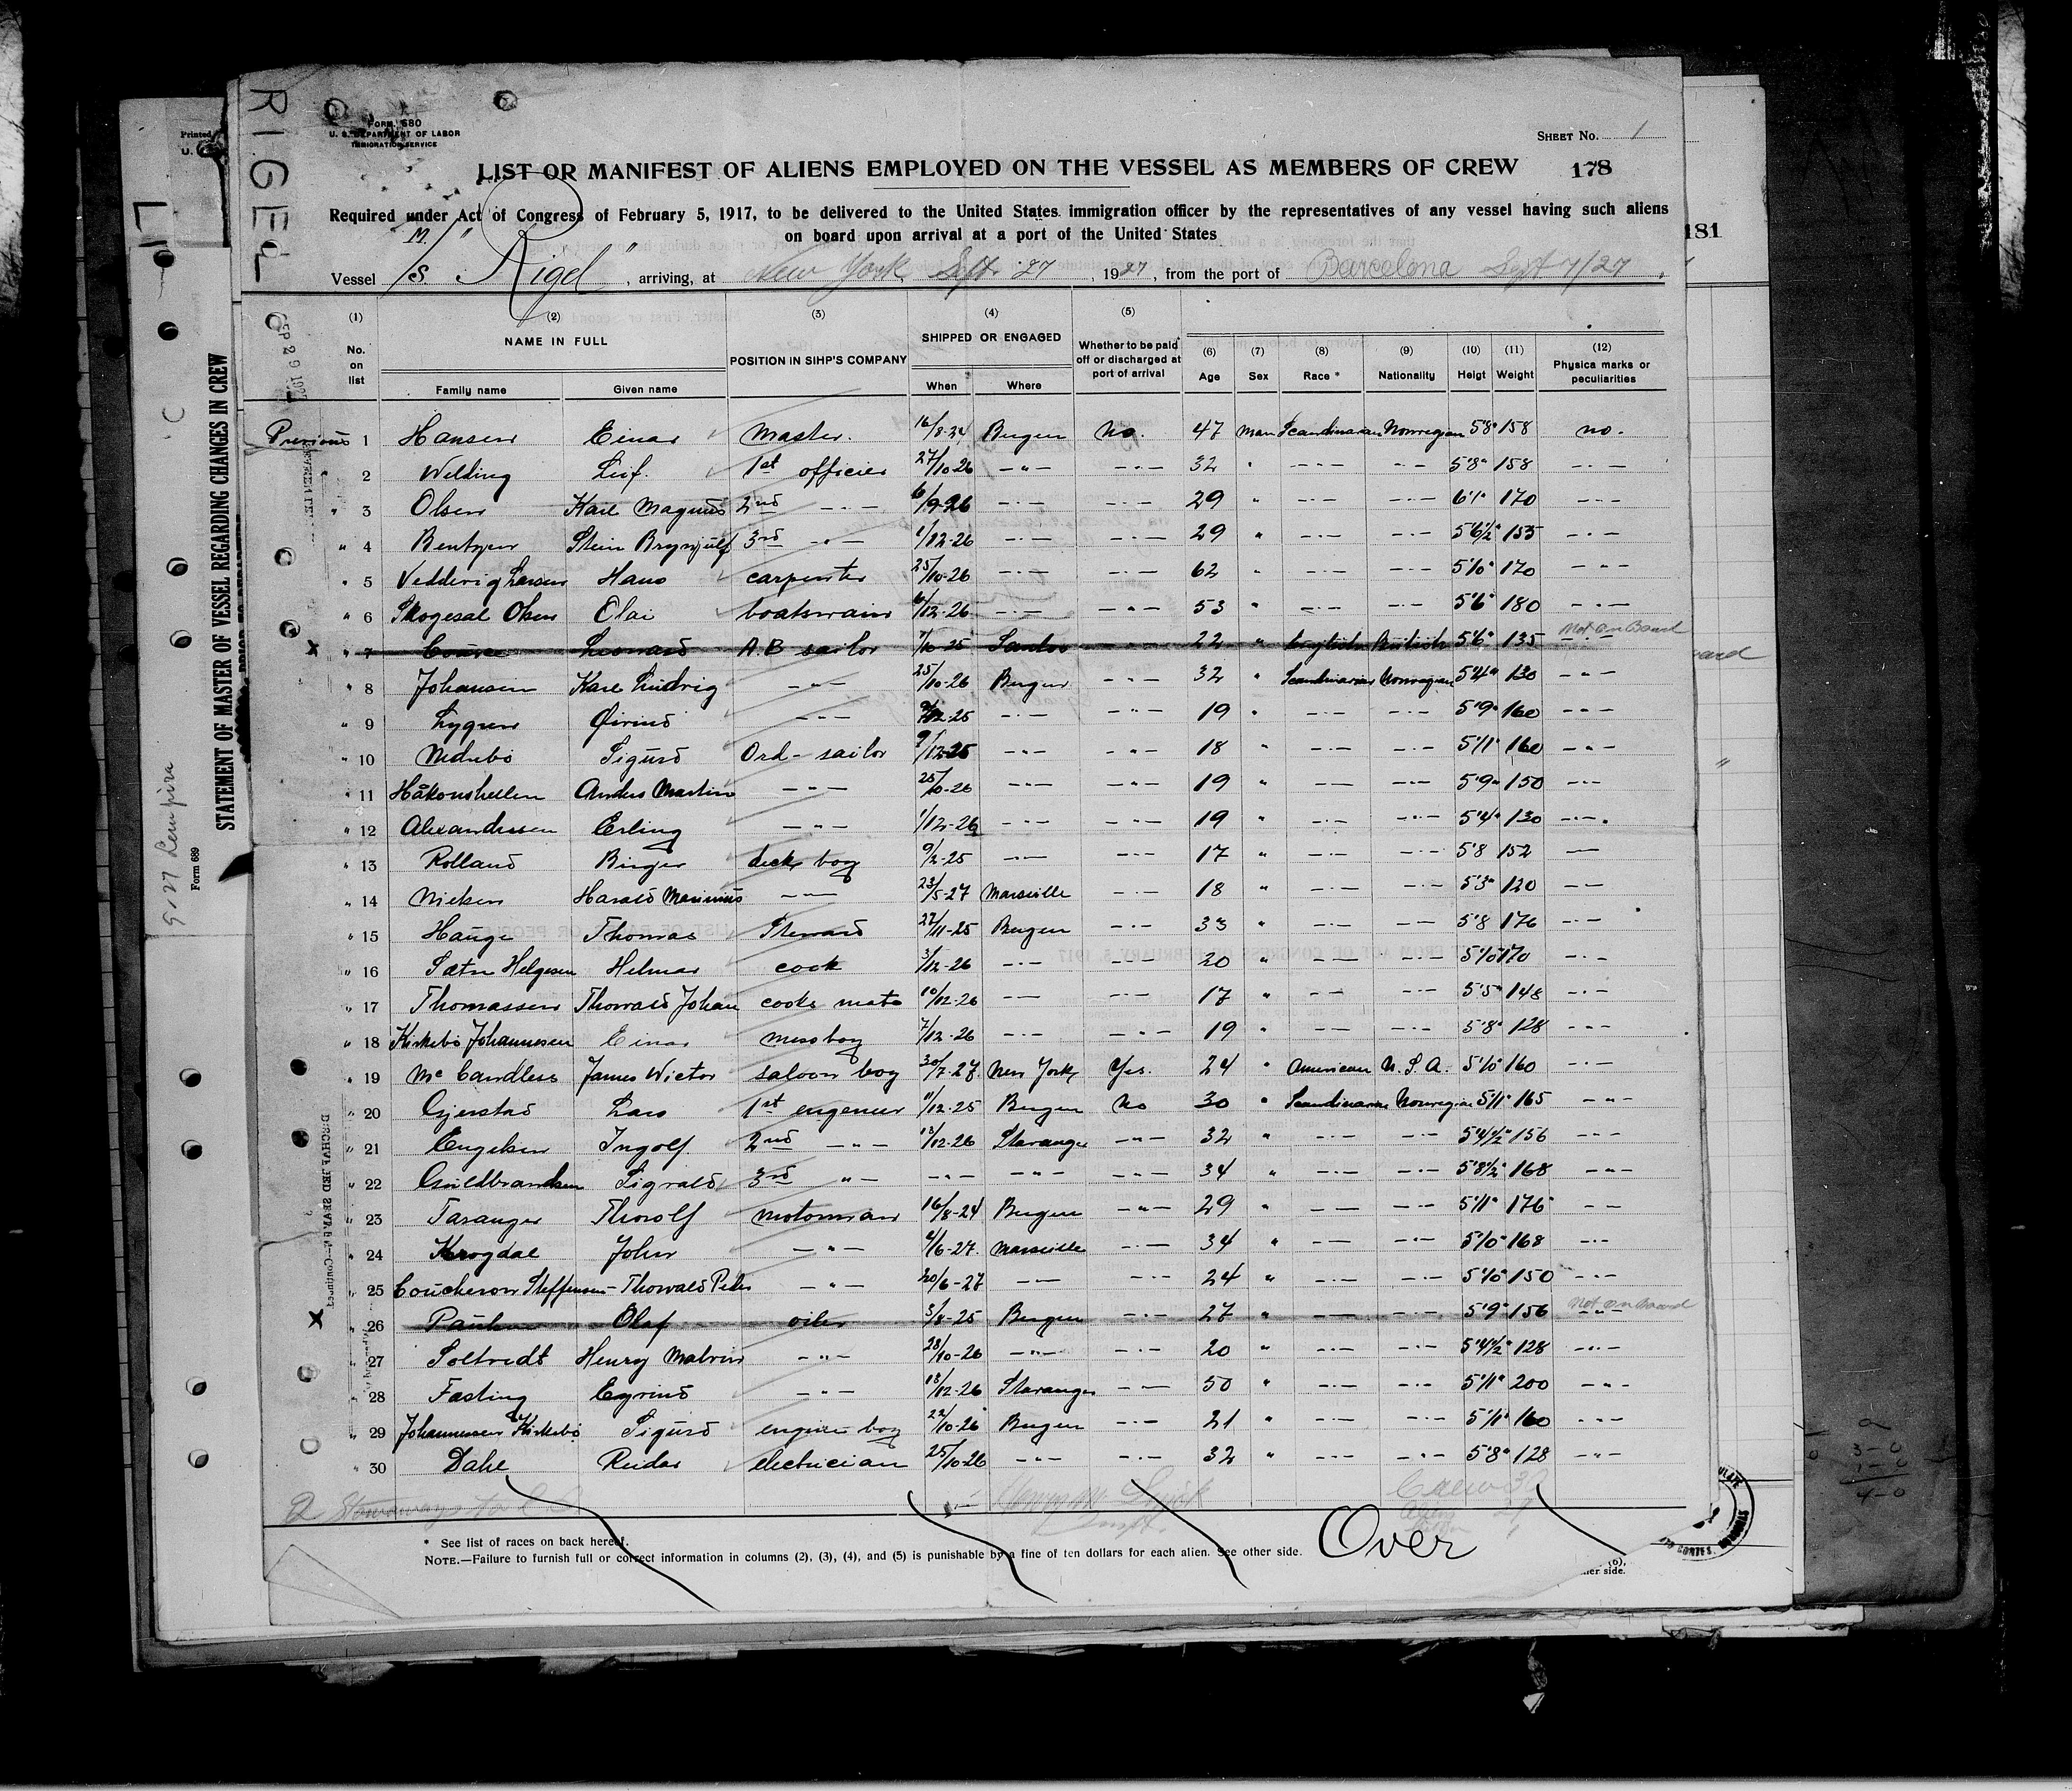 RIGEL
FORM 680
U. S. DEPARTMENT OF LABOR
IMMIGRATION SERVICE
SHEET No. 1
LIST OR MANIFEST OF ALIENS EMPLOYED ON THE VESSEL AS MEMBERS OF CREW 178
Required under Act of Congress of February 5, 1917, to be delivered to the United States immigration officer by the representatives of any vessel having such aliens
on board upon arrival at a port of the United States
Vessel M/S. "Rigel", arriving, at New York Sept. 27, 1927, from the port of Barcelona Sept 7/27.
(1) No. on list (2) NAME IN FULL Family name Given name (3) POSITION IN SIHP'S COMPANY (4) SHIPPED OR ENGAGED When Where (5) Whether to be paid off or discharged at port of arrival (6) Age (7) Sex (8) Race * (9) Nationality (10) Heigt (11) Weight (12) Physica marks or peculiarities
Previous 1 Hansen Einar Master. 16/8-24 Bergen No. 47 Man Scandinavian Norwegian 5'8" 158 no.
" 2 Welding Leif. 1st officier 27/10-26 —"— —"— 32 " —"— —"— 5'8" 158 —"—
" 3 Olsen Karl Magnus 2nd —"— 6/9-26 —"— —"— 29 " —"— —"— 6'1" 170 —"—
" 4 Bentzen Stein Brynjulf 3rd —"— 1/12-26 —"— —"— 29 " —"— —"— 5'6½" 155 —"—
" 5 Vedderig Larsen Hans carpenter 25/10-26 —"— —"— 62 " —"— —"— 5'10" 170 —"—
" 6 Skogesal Olsen Olai boatswain 6/12-26 —"— —"— 53 " —"— —"— 5'6" 180 —"—
x " 7 Leonard A.B sailor 7/10-25 Santos —"— 22 " English British 5'6" 135 Not on Board
" 8 Johansen Karl Ludvig —"— 25/10-26 Bergen —"— 32 " Scandinavian Norwegian 5'4" 130 —"—
" 9 Lygren Øivind —"— 12-25 —"— —"— 19 " —"— —"— 5'9" 160 —"—
" 10 Nedrebö Sigurd Ord- sailor 9/12-25 —"— —"— 18 " —"— —"— 5'11" 160 —"—
" 11 Håkonshellen Anders Martin —"— 25/10-26 —"— —"— 19 " —"— —"— 5'9" 150 —"—
" 12 Alexandersen Erling —"— 1/12-26 —"— —"— 19 " —"— —"— 5'4" 130 —"—
" 13 Rolland Birger deck boy 9/2-25 —"— —"— 17 " —"— —"— 5'8 152 —"—
" 14 Nielsen Harald Marinius —"— 23/5-27 Marseille —"— 18 " —"— —"— 5'3" 120 —"—
" 15 Hauge Thomas Steward 27/11-25 Bergen —"— 33 " —"— —"— 5'8 176 —"—
" 16 Sætre Helgesen Helmar cook 3/12-26 —"— —"— 20 " —"— —"— 5'10 170 —"—
" 17 Thomassen Thorvald Johan cooks mate 10/12-26 —"— —"— 17 " —"— —"— 5'5" 148 —"—
" 18 Kirkebö Johannesen Einar messboy 7/12-26 —"— —"— 19 " —"— —"— 5'8" 128 —"—
" 19 Mc Candless James Wictor saloon boy 30/7-27 New York Yes. 24 " American U.S.A. 5'10" 160 —"—
" 20 Gjerstad Lars 1st engeneer 11/12-25 Bergen No 30 " Scandinavian Norwegian 5'11" 165 —"—
" 21 Engelsen Ingolf. 2nd —"— 13/12-26 Stavanger —"— 32 " —"— —"— 5'4½" 156 —"—
" 22 Guldbrandsen Sigvald 3rd " — —"— —"— —"— 34 " —"— —"— 5'8½" 168 —"—
" 23 Taranger Thorolf motorman 16/8-24 Bergen —"— 29 " —"— —"— 5'11" 176 —"—
" 24 Krogdal John —"— 4/6-27. Marseille —"— 34 " —"— —"— 5'10" 168 —"—
" 25 Coucheron Steffensen- Thorvald Peter —"— 20/6-27 —"— —"— 24 " —"— —"— 5'10" 150 —"—
x " 26 Paulsen Olaf oiler 3/8-25 Bergen —"— 27 " —"— —"— 5'9" 156 Not on board
" 27 Soltvedt Henry Malvin —"— 28/10-26 —"— —"— 20 " —"— —"— 5'4½" 128 —"—
" 28 Fasting Eyvind —"— 13/12-26 Stavanger —"— 50 " —"— —"— 5'11" 200 —"—
" 29 Johannessen Kirkebö Sigurd engine boy 22/10-26 Bergen —"— 21 " —"— —"— 5'11" 160 —"—
" 30 Dahl Reidar electrician 25/10-26 —"— —"— 32 " —"— —"— 5'8" 128 —"—
2 Stowaways
Over
* See list of races on back hereof.
NOTE.—Failure to furnish full or correct information in columns (2), (3), (4), and (5) is punishable by a fine of ten dollars for each alien. See other side.
SEP 29 1927
STATEMENT OF MASTER OF VESSEL REGARDING CHANGES IN CREW
Form 689
Printed
181